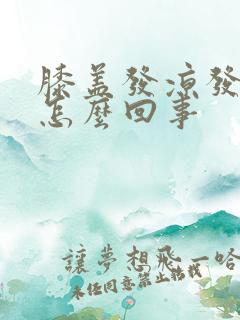 膝盖發凉發
怎麼回事
讓夢想飛一哈
未经同意禁止轉載